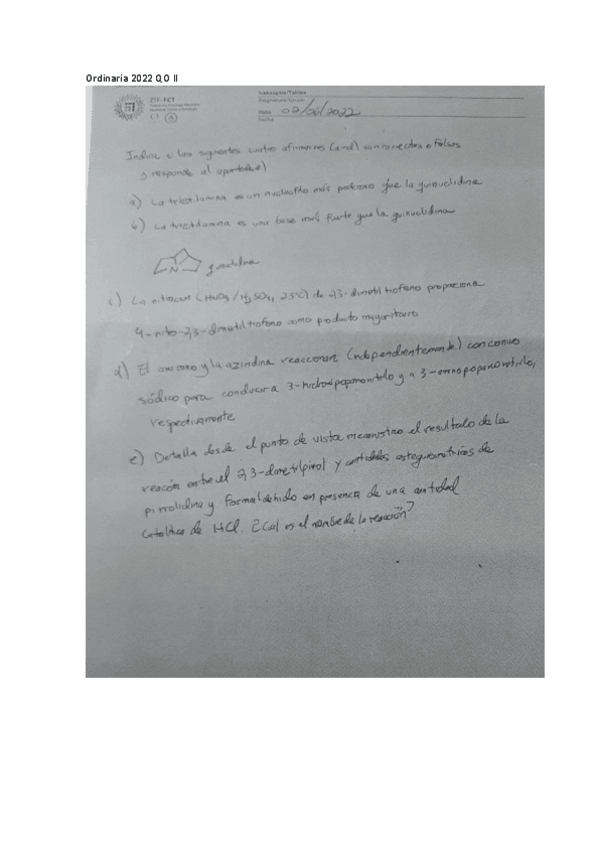 Ordinaria 2022 QO II
ZTF-FCT
Irakasgaia/Taldea
Asignatura/Grupo
Data 02/06/2022
Fecha
Indica si las siguientes cuatro afirmaciones (a-d) son correctas o falsas
y responde al apartado e)
a) La trietilamina es un nucleófilo más poderoso que la quinuclidina
b) La trietilamina es una base más fuerte que la quinuclidina
N quinuclidina
c) La nitración (HNO3/H2SO4, 25ºC) de 2,3-dimetiltiofeno proporciona
4-nitro-2,3-dimetiltiofeno como producto mayoritario
d) El oxirano y la aziridina reaccionan (independientemente) con cianuro
sódico para conducir a 3-hidroxipropanonitrilo y a 3-aminopropanonitrilo,
respectivamente
e) Detalla desde el punto de vista mecanístico el resultado de la
reacción entre el 2,3-dimetilpirrol y cantidades estequiométricas de
pirrolidina y formaldehido en presencia de una cantidad
catalítica de HCl. ¿Cuál es el nombre de la reacción?